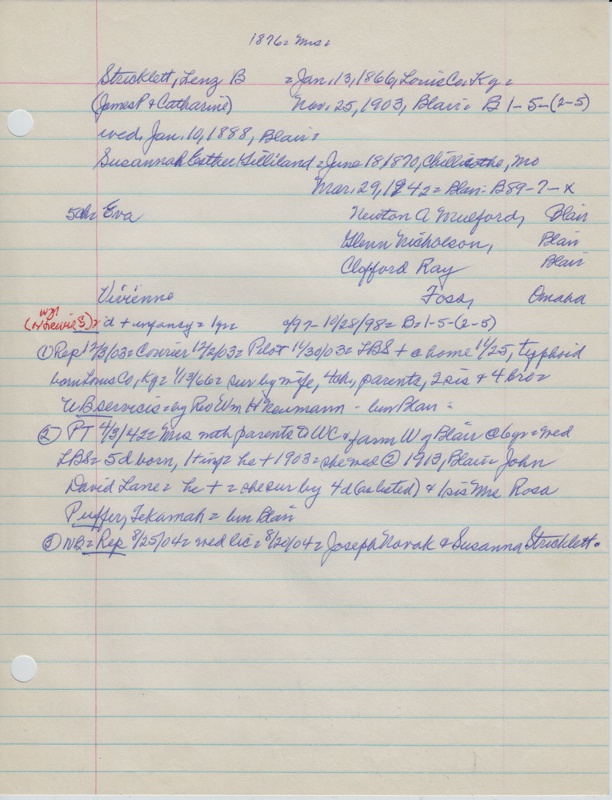 1876 = Mrs =
Stricklett, Lenz B = Jan. 13, 1866, Louis Co, Ky =
(James P + Catharine) Nov. 25, 1903, Blair = B 1-5-(2-5)
wed, Jan. 10, 1888, Blair =
Susannah Esther Gilliland = June 18 1870, Chillicothe, Mo
Mar. 29, 1942 = Blair = B 89-7-x
5ch = Eva Newton A Mulford, Blair
Glenn Nicholson, Blair
Clifford Ray Blair
Vivienne Foss, Omaha
(S) = d + infancy = 1yr 9/97 - 10/28/98 = B = 1-5-(2-5)
① Rep 12/3/03 = Courier 12/2/03 = Pilot 11/30/03 = LBS + @ home 11/25, typhoid
born Louis Co, Ky = 1/13/66 = sur by wife, 4ch, parents, 2 sis + 4 bro =
UB servis = by Rev Wm H Neumann - bur Blair =
② PT 4/3/42 = Mrs with parents to WC + farm W of Blair @ 6yr = wed
LBS = 5 d born, 1 + inf = he + 1903 = she wed ② 1913, Blair = John
David Lane = he + = she sur by 4 d (as listed) + 1 sis Mrs Rosa
Puffer, Tekamah = bur Blair
③ NB = Rep 8/25/04 = wed lic = 8/20/04 = Joseph Novak & Susanna Stricklett =